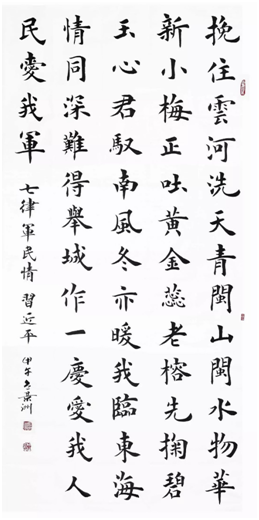 挽住雲河洗天青閩山閩水物華
新小梅正吐黃金蕊老榕先掬碧
玉心君馭南風冬亦暖我臨東海
情同深難得舉城作一慶愛我人
民愛我軍 七律軍民情 習近平 甲午冬景洲